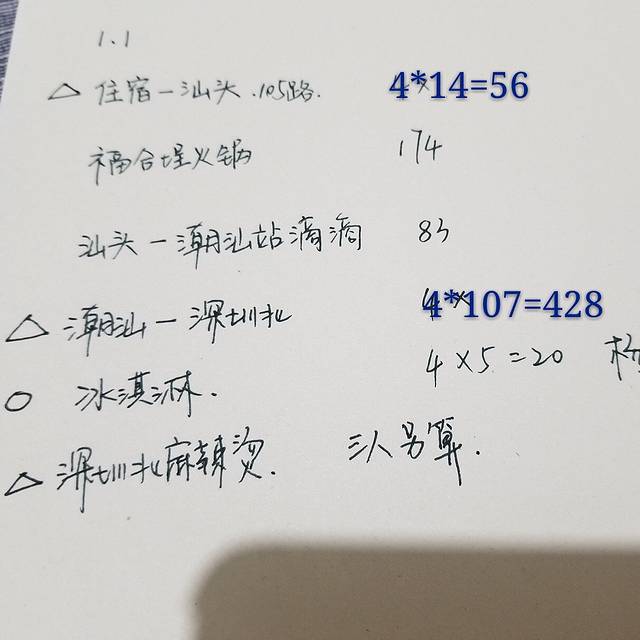 1.1
△ 住宿一汕头.105路. 4*14=56
福合埕火锅 174
汕头一潮汕站滴滴 83
△ 潮汕一深圳北 4*107=428
○ 冰淇淋. 4×5=20
△ 深圳北麻辣烫. 三人另算.